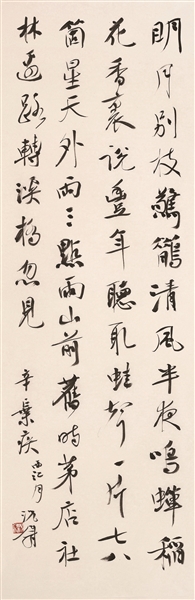 明月別枝驚鵲清風半夜鳴蟬稻
花香裏說豐年聽取蛙聲一片七八
箇星天外兩三點雨山前舊時茅店社
林邊路轉溪橋忽見
辛棄疾西江月